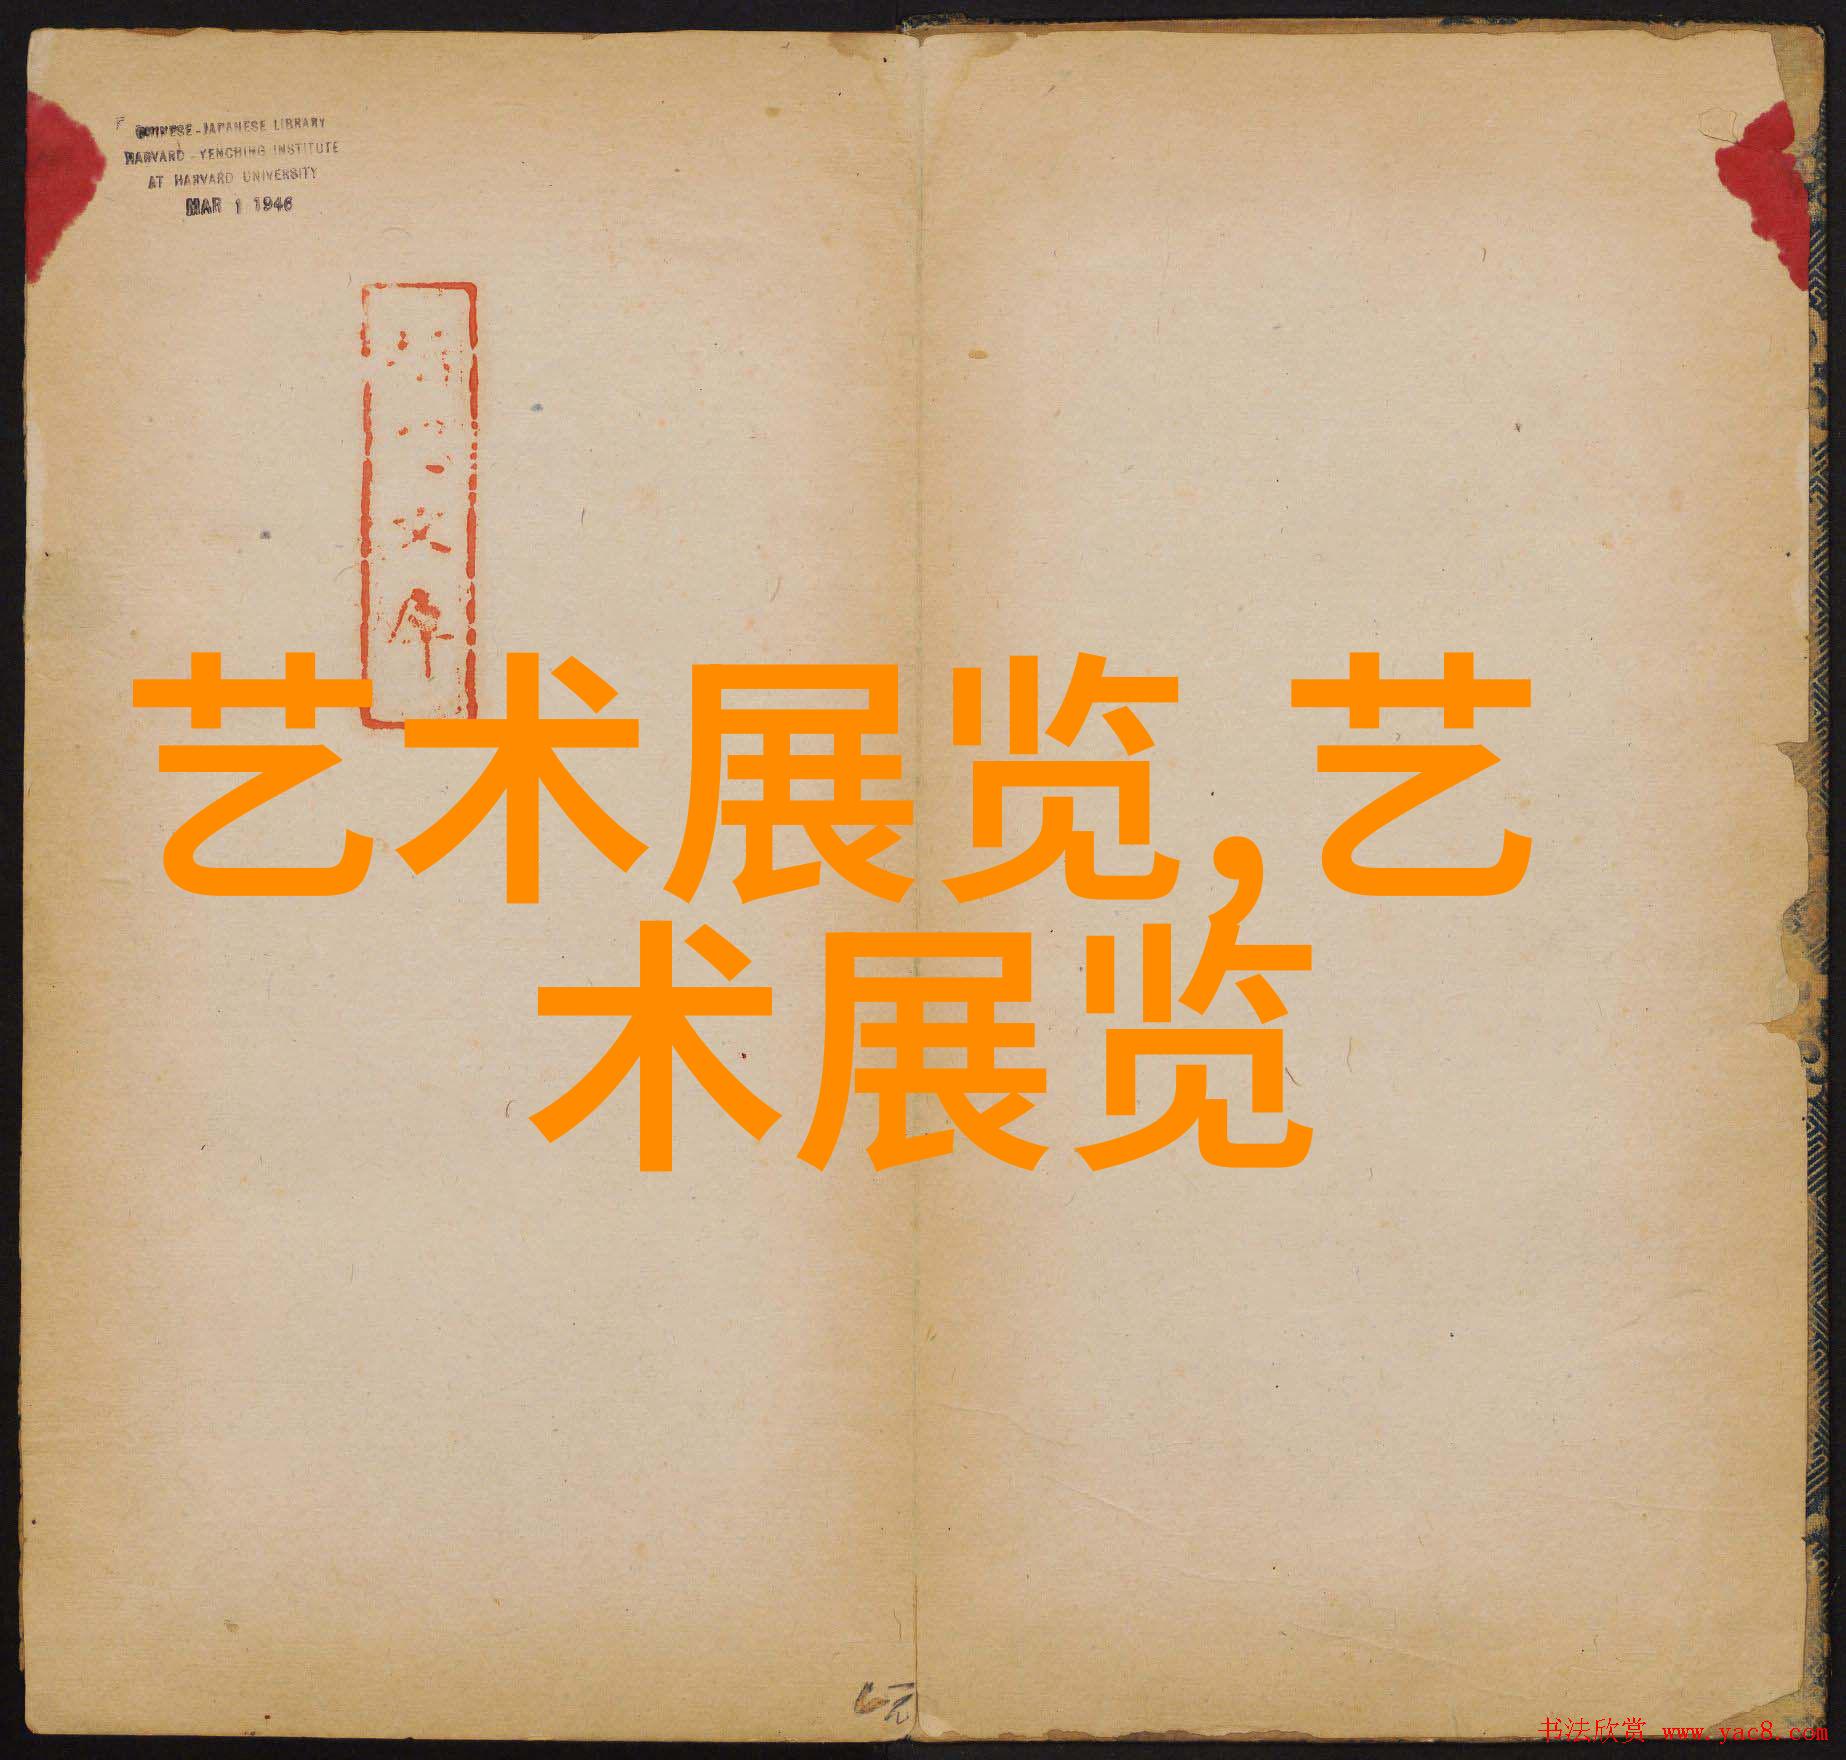 CHINESE-JAPANESE LIBRARY
HARVARD-YENCHING INSTITUTE
AT HARVARD UNIVERSITY
MAR 1 1946
文
艺术展览,艺
术展览
6元
书法欣赏 www.yac8.com